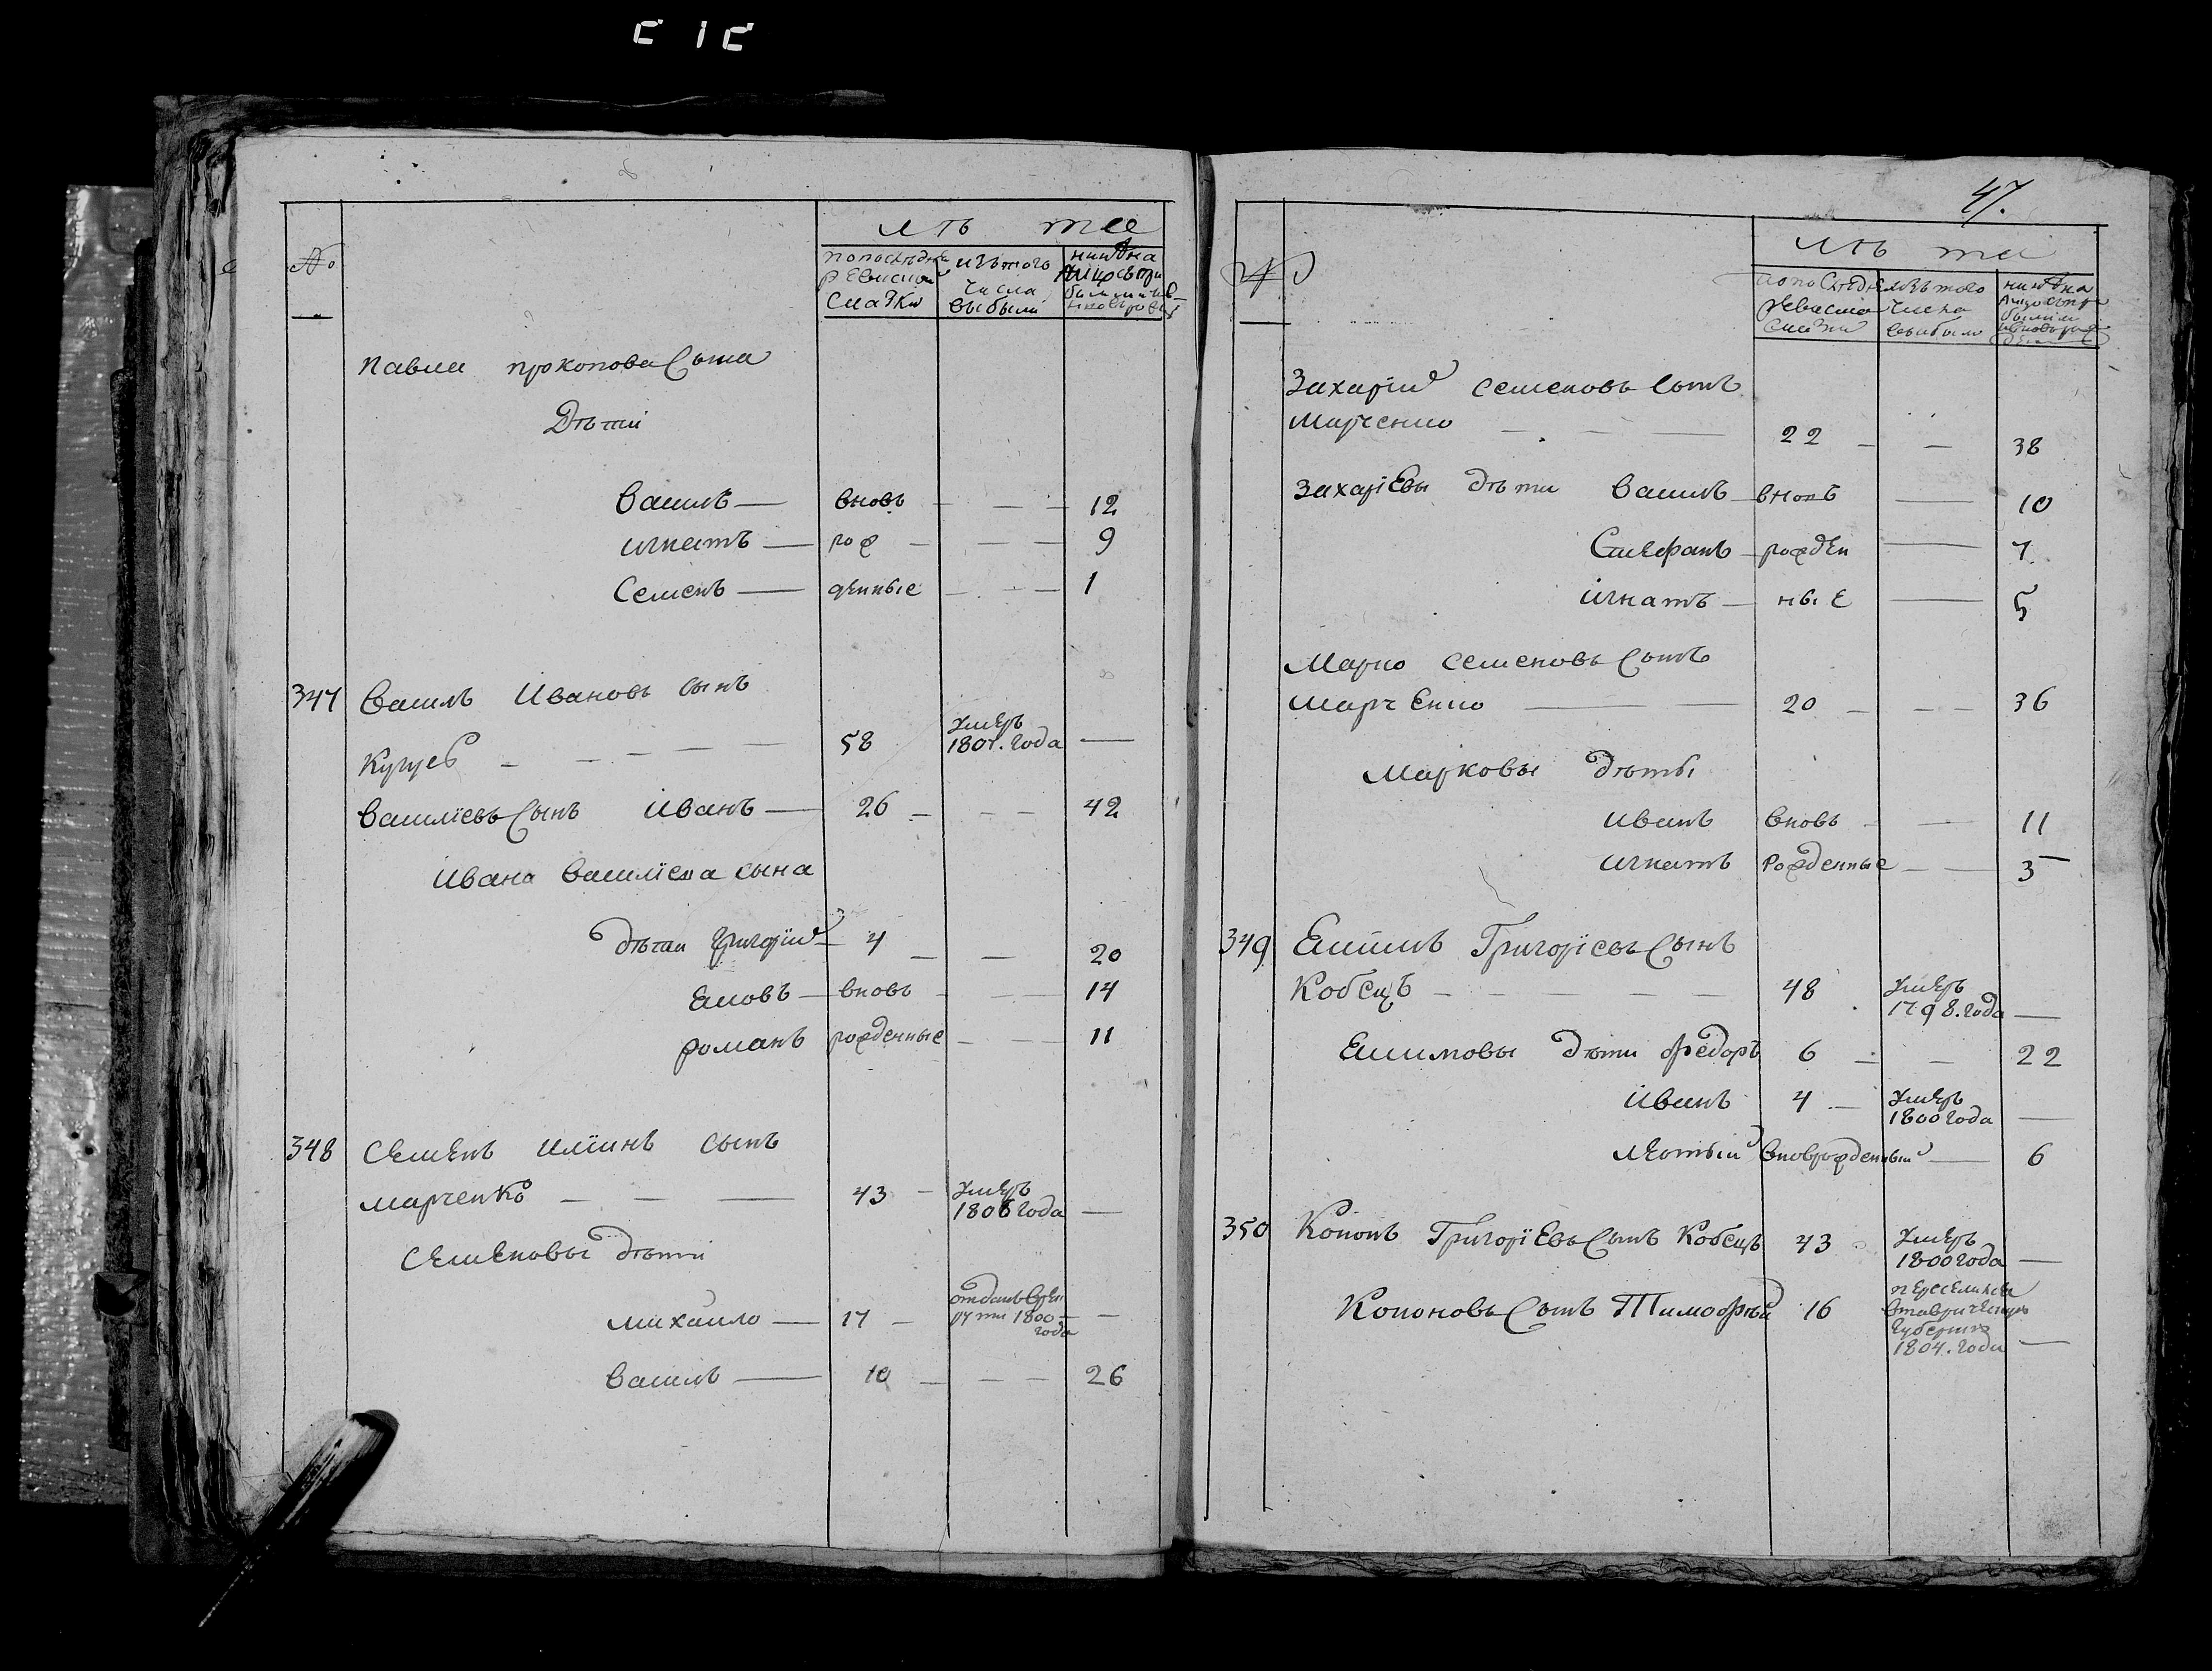 №
лѣта
попоследнѣ ревиской сказки
изъ того числа выбыли
нинѣ на лицо съ при былими и вновьрожд
Павла прокопова Сына
Дѣти
Василь — вновь — — — 12
игнатъ — рож — — — 9
Семенъ — денные — — — 1
347 Василь Ивановъ сынъ
Куцуеб — — — — 58 Умеръ 1801. года —
Василіевъ Сынъ Иванъ — 26 — — — 42
Ивана Василіева сына
дѣти Григорій — 4 — — 20
Яковъ — вновь — — — 14
романъ рожденные — — — 11
348 Семенъ Иліинъ сынъ
марченко — — — 43 — Умеръ 1806 года —
Семеновы дѣти
михаило — 17 — отданъ врек руты 1800 года —
Василь — 10 — — — 26
47.
№
лѣта
попоследнѣ ревиско сказки
изъ того числа выбыло
нинѣ на лицо съ при былими и вновьрож ден
Захарій семеновъ сынъ
Марченко — — — 22 — — 38
Захаріевы дѣти Василь вновь — 10
Стефанъ — рожден — 7
Игнатъ — ные — 5
Марко семеновъ сынъ
марченко — — 20 — — — 36
Марковы дѣты
иванъ вновь — — 11
игнатъ Рожденные — — 3
349 Екимъ Григоріевъ Сынъ
Кобецъ — — — — — 48 Умеръ 1798. года —
Екимовы дѣти Федоръ 6 — — 22
иванъ 4 — Умеръ 1800 года —
леонтый вновьрожденный — 6
350 Кононъ Григоріевъ Сынъ Кобецъ 43 Умеръ 1800 года —
Кононовъ Сынъ Тимофѣй 16 переселился втаврическую губернию 1804. года —